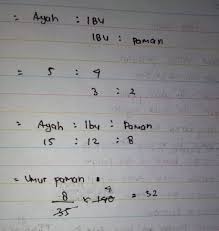 = Ayah : IBU
IBU : paman
= 5 : 4
3 : 2
= Ayah : Ibu : Paman
15 : 12 : 8
= Umur paman =
8/35 x 140 = 32